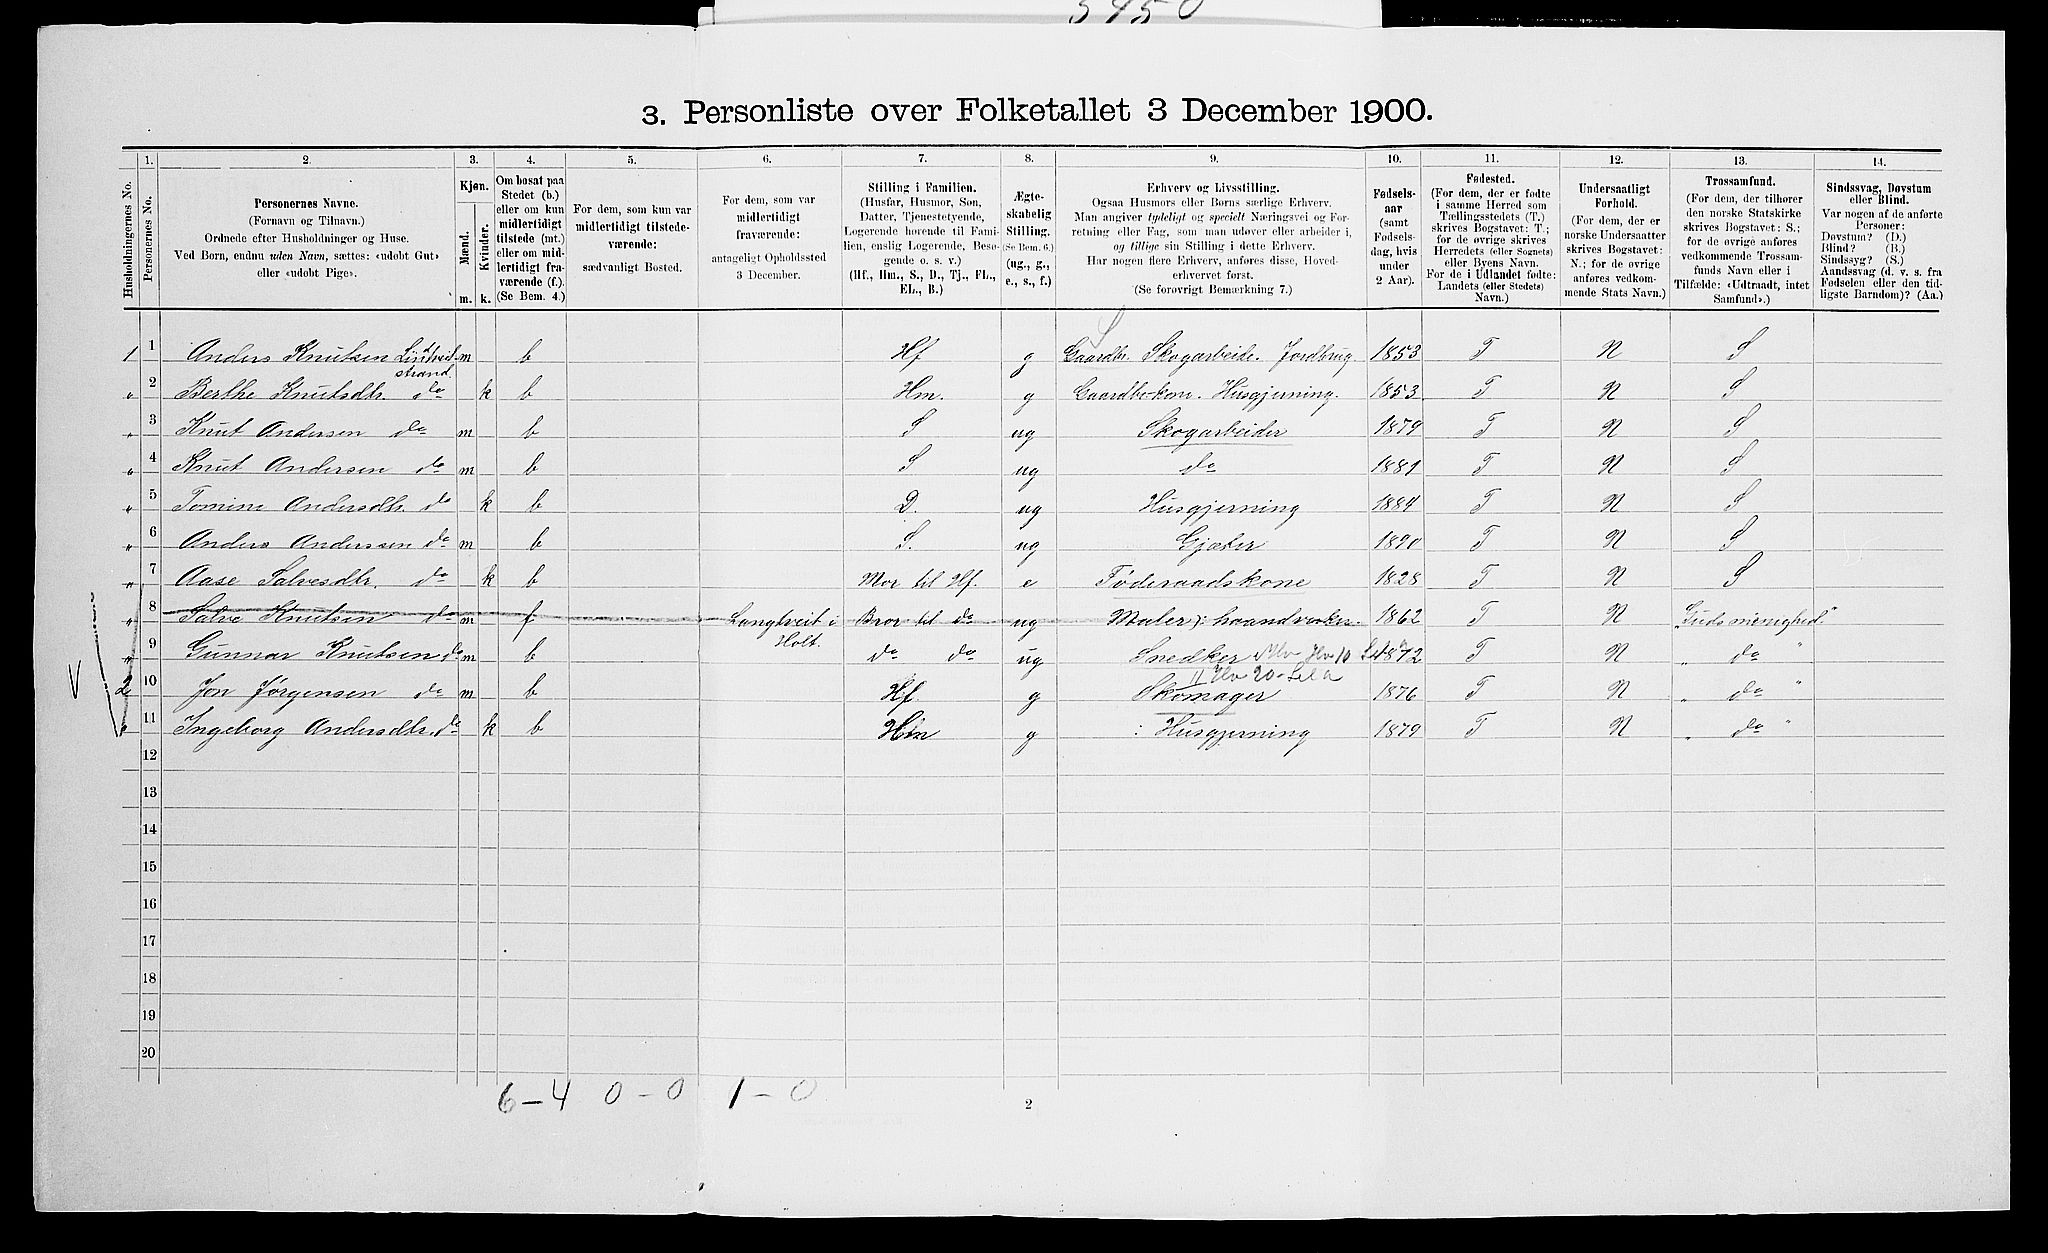 5450
3. Personliste over Folketallet 3 December 1900.
Husholdningernes No.
1. Personernes No.
2. Personernes Navne.
(Fornavn og Tilnavn.)
Ordnede efter Husholdninger og Huse.
Ved Børn, endnu uden Navn, sættes: «udøbt Gut»
eller «udøbt Pige».
3. Kjøn.
Mænd. m.
Kvinder. k.
4. Om bosat paa
Stedet (b.)
eller om kun
midlertidigt
tilstede (mt.)
eller om mid-
lertidigt fra-
værende (f.)
(Se Bem. 4.)
5. For dem, som kun var
midlertidigt tilstede-
værende:
sædvanligt Bosted.
6. For dem, som var
midlertidigt
fraværende:
antageligt Opholdssted
3 December.
7. Stilling i Familien.
(Husfar, Husmor, Søn,
Datter, Tjenestetyende,
Logerende hørende til Fami-
lien, enslig Logerende, Besø-
gende o. s. v.)
(Hf., Hm., S., D., Tj., FL.,
EL., B.)
8. Ægte-
skabelig
Stilling.
(Se Bem. 6.)
(ug., g.,
e., s., f.)
9. Erhverv og Livsstilling.
Ogsaa Husmors eller Børns særlige Erhverv.
Man angiver tydeligt og specielt Næringsvei og For-
retning eller Fag, som man udøver eller arbeider i,
og tillige sin Stilling i dette Erhverv.
Har nogen flere Erhverv, anføres disse, Hoved-
erhvervet først.
(Se forøvrigt Bemærkning 7.)
10. Fødsels-
aar
(samt
Fødsels-
dag, hvis
under
2 Aar).
11. Fødested.
(For dem, der er fødte
i samme Herred som
Tællingsstedets (T.)
skrives Bogstavet: T.;
for de øvrige skrives
Herredets (eller Sognets)
eller Byens Navn.
For de i Udlandet fødte:
Landets (eller Stedets)
Navn.)
12. Undersaatligt
Forhold.
(For dem, der er
norske Undersaatter
skrives Bogstavet:
N.; for de øvrige
anføres vedkom-
mende Stats Navn.)
13. Trossamfund.
(For dem, der tilhører
den norske Statskirke
skrives Bogstavet: S.;
for de øvrige anføres
vedkommende Trossam-
funds Navn eller i
Tilfælde: «Udtraadt, intet
Samfund».)
14. Sindssvag, Døvstum
eller Blind.
Var nogen af de anførte
Personer:
Døvstum? (D.)
Blind? (B.)
Sindssyg? (S.)
Aandssvag (d. v. s. fra
Fødselen eller den tid-
ligste Barndom)? (Aa.)
1 1 Anders Knutsen Lindtveit- m b Hf g Gaardbr. Skogarbeide. Jordbrug 1853 T N S
strand.
" 2 Berthe Knutsdtr. do k b Hm. g Gaardbr-kone. Husgjerning. 1853 T N S
" 3 Knut Andersen do m b S ug Skogarbeider 1879 T N S
" 4 Knut Andersen do m b S ug do 1881 T N S
" 5 Tomine Andersdtr. do k b D. ug Husgjerning 1884 T N S
" 6 Anders Anderssen do m b S. ug Gjæter 1890 T N S
" 7 Aase Salvesdtr. do k b Mor til Hf. e Føderaadskone 1828 T N S
" 8 Salve Knutsen do m f Langtveit i Bror til do ug Maler, haandverker. 1862 T N "Guds menighed"
Holt.
" 9 Gunnar Knutsen do m b do do ug Snedker 1872 T N " do "
V 2 10 Jon Jørgensen do m b Hf. g Skomager 1876 T N " do "
" 11 Ingeborg Andersdtr. do k b Hm g : Husgjerning 1879 T N " do "
12
13
14
15
16
17
18
19
20
6-4 0-0 1-0
2